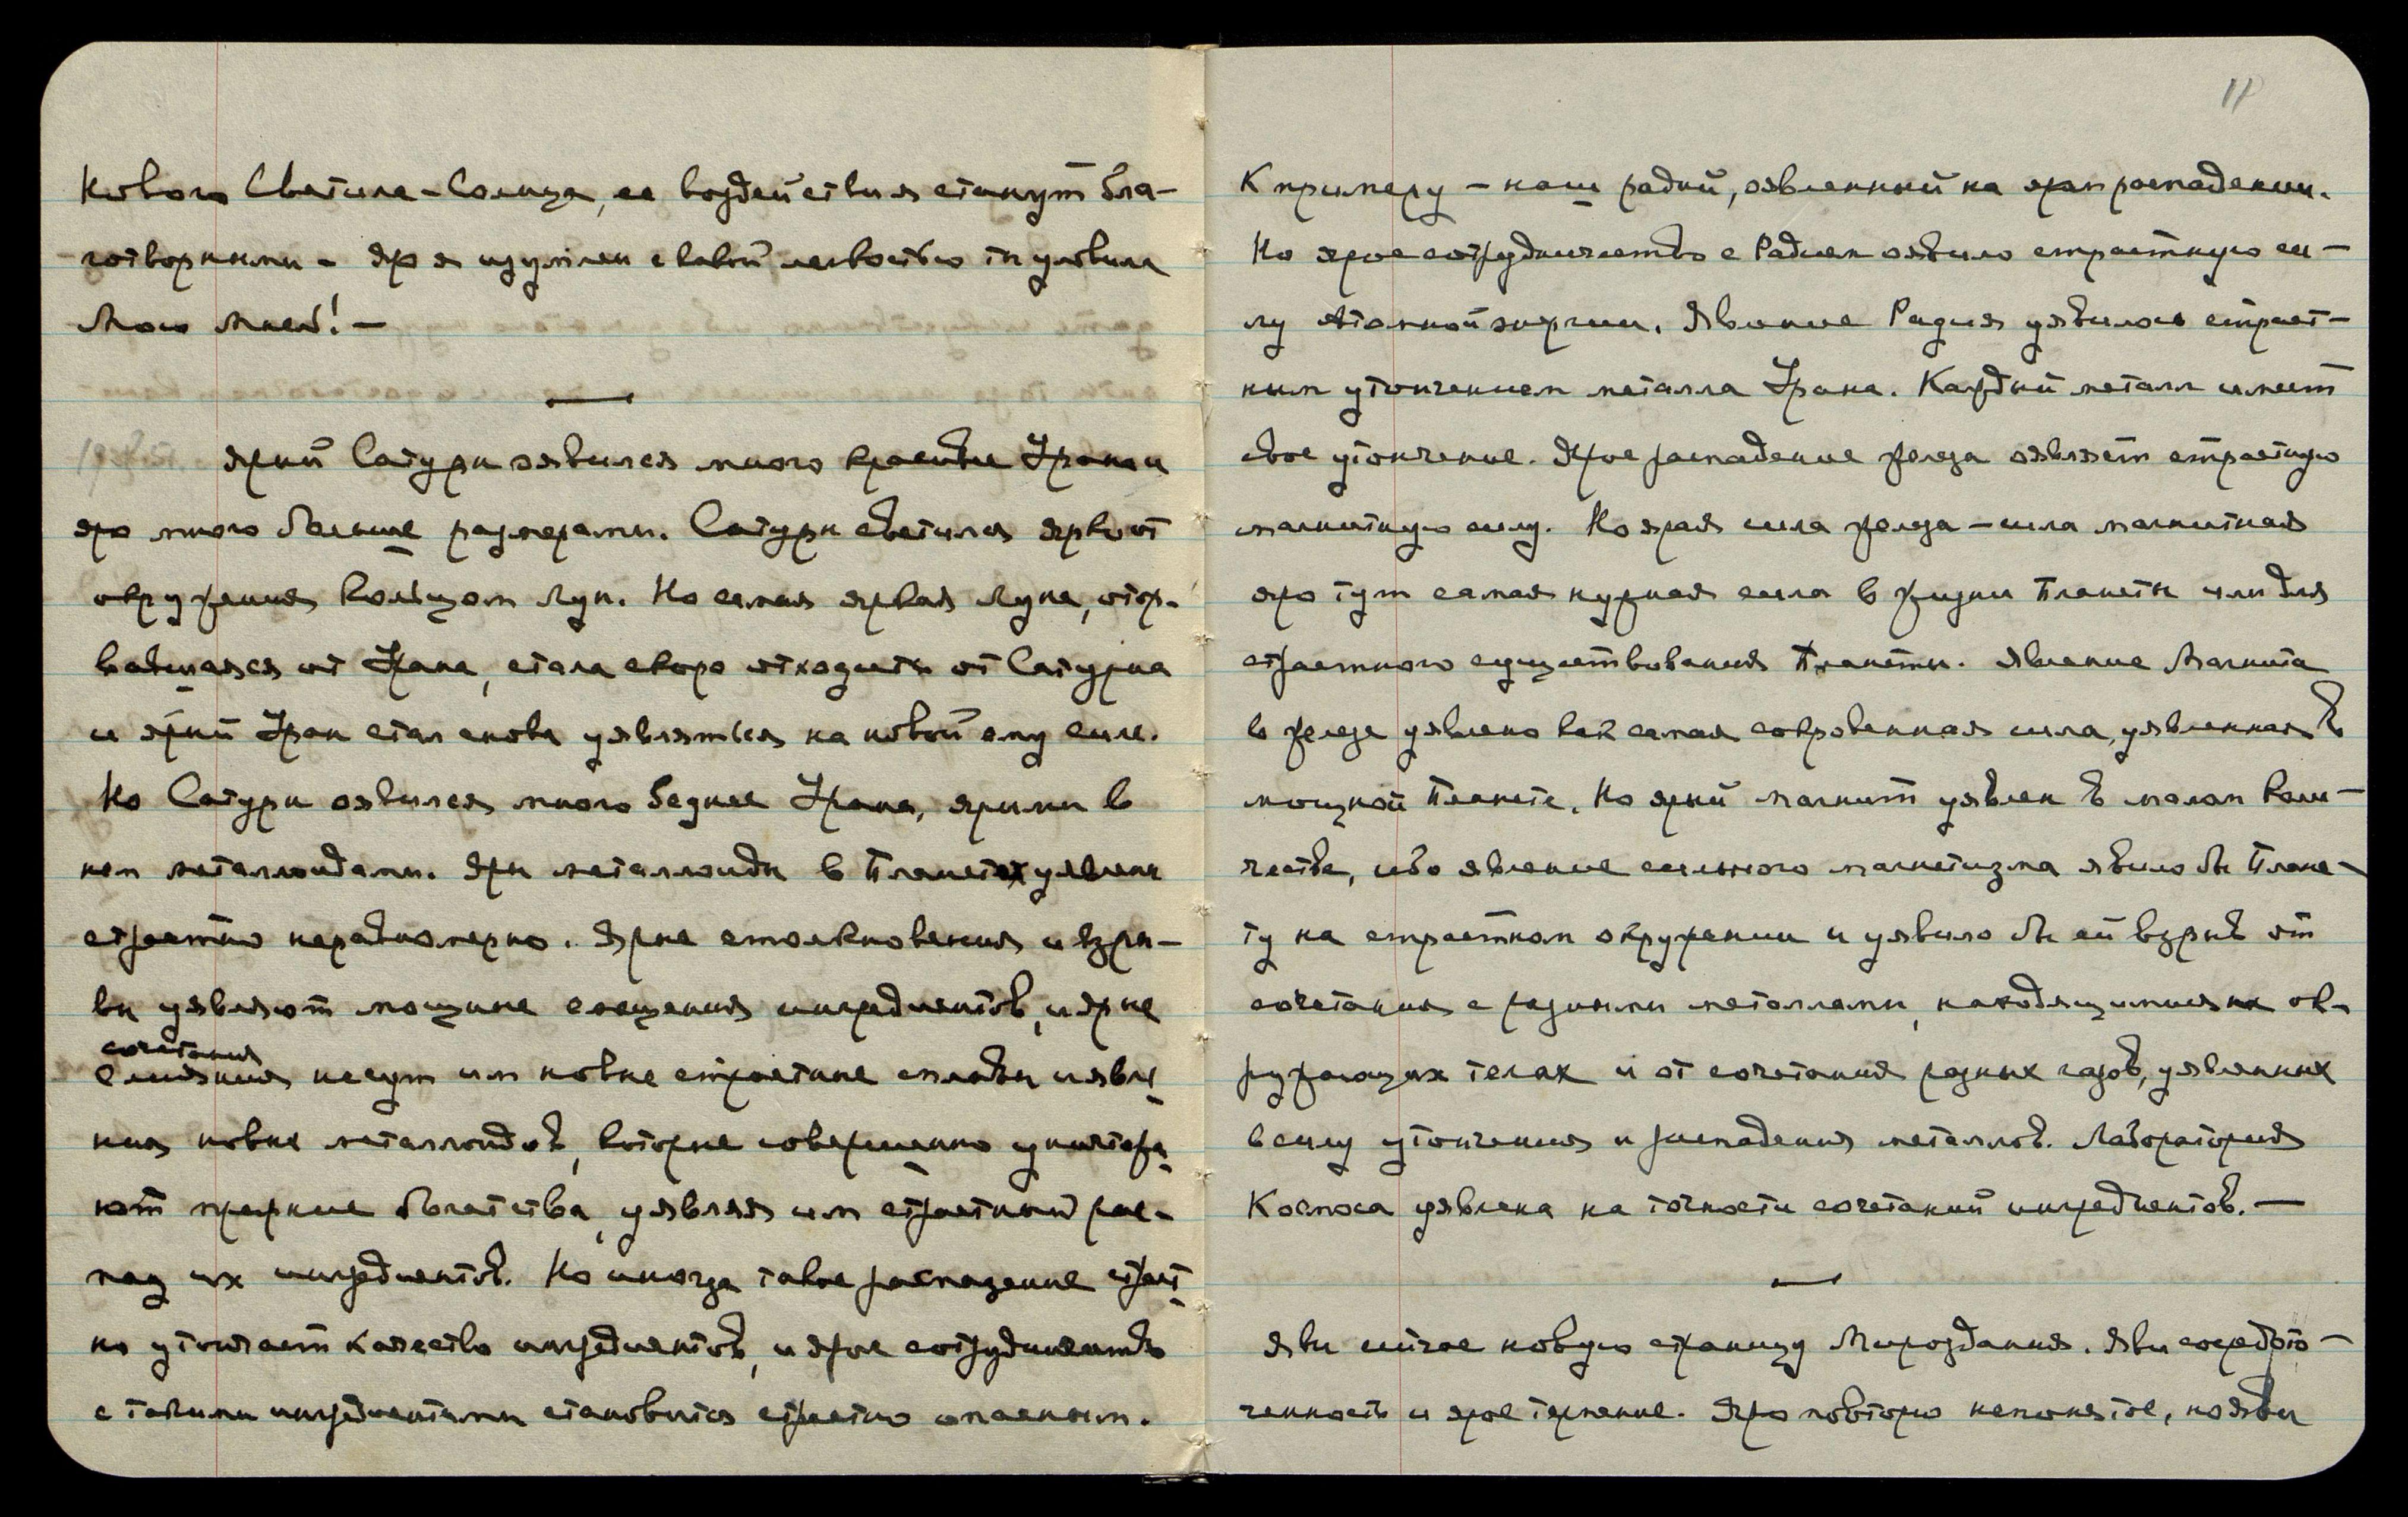 нового Светила-Солнца, ее воздействия станут бла-
готворными – Яро я изумлен с какой легкостью ты уловила
Мою Мысль! –
Ярый Сатурн оявился много красивее Урана и
яро много больше размерами. Сатурн светился ярко от
окружения кольцом Лун. Но самая яркая Луна, отор-
вавшаяся от Урана, стала скоро отходить от Сатурна
и ярый Уран стал снова уявляться на новой ему силе.
Но Сатурн оявился много беднее Урана, ярыми в
нем металлоидами. Яры металлоиды в Планетах уявлены
страстно неравномерно. Ярые столкновения и взры-
вы уявляют мощные смещения ингредиентов, и ярые
сочетания
слияния несут им новые страстные сплавы и явле
ния новых металлоидов, которые совершенно уничтожа
ют прежние богатства, уявляя им страстный рас-
пад их ингредиентов. Но иногда такое распадение страст
но утончает качество ингредиентов, и ярое сотрудничество
с такими ингредиентами становится страстно опасным.
11
К примеру – наш радий, оявленный на яром распадении.
Но ярое сотрудничество с Радием оявило страстную си-
лу Атомной энергии. Явление Радия уявилось страст-
ным утончением металла Урана. Каждый металл имеет
свое утончение. Ярое распадение железа оявляет страстную
магнитную силу. Но ярая сила железа – сила магнитная
яро тут самая нужная сила в жизни Планеты или для
страстного существования Планеты. Явление Магнита
в железе уявлено как самая сокровенная сила, уявленная в
мощной Планете. Но ярый магнит уявлен в малом коли-
честве, ибо явление сильного магнетизма явило бы Плане-
ту на страстном окружении и уявило бы ей взрыв от
сочетания с разными металлами, находящимися на ок-
ружающих телах и от сочетания разных газов, уявленных
в силу утончения и распадения металлов. Лаборатория
Космоса уявлена на точности сочетаний ингредиентов. –
Яви сейчас новую страницу Мироздания. Яви сосредото-
ченность и ярое терпение. Яро повторю непонятое, но яви